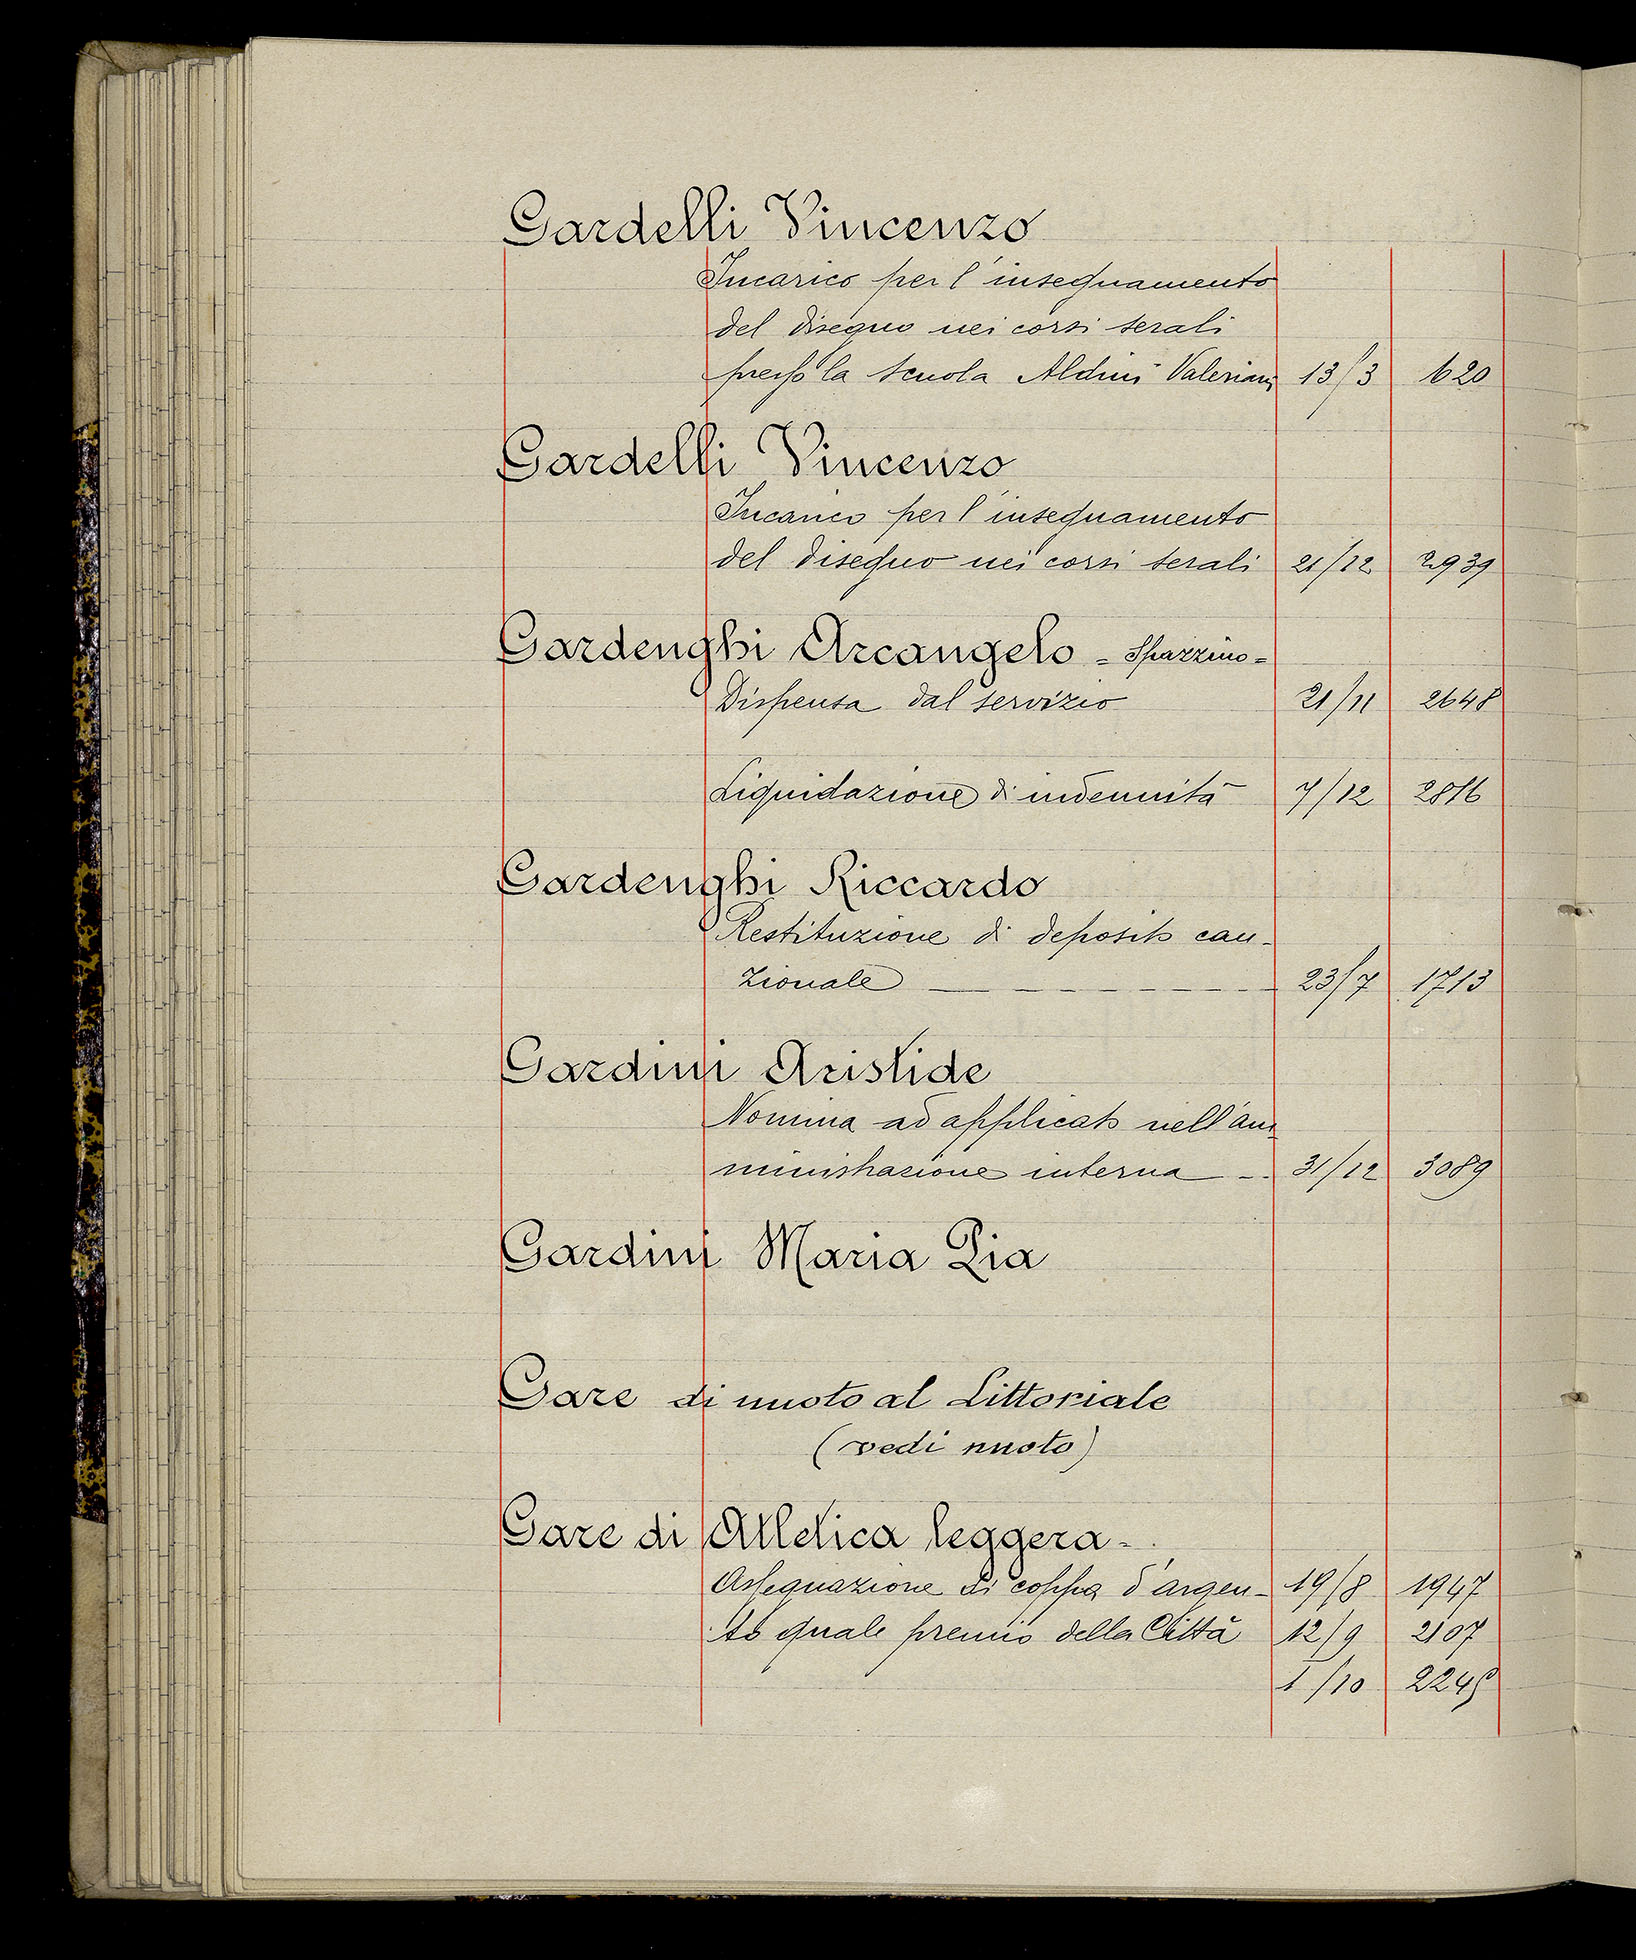 Gardelli Vincenzo
Incarico per l'insegnamento
del disegno nei corsi serali
presso la scuola Aldini Valeriani 13/3 620
Gardelli Vincenzo
Incarico per l'insegnamento
del disegno nei corsi serali 21/12 2939
Gardenghi Arcangelo - Spazzino -
Dispensa dal servizio 21/11 2648
Liquidazione di indennità 7/12 2816
Gardenghi Riccardo
Restituzione di deposito cau-
zionale 23/7 1713
Gardini Aristide
Nomina ad applicato nell'am
ministrazione interna 31/12 3089
Gardini Maria Pia
Gare di nuoto al Littoriale
(vedi nuoto)
Gare di Atletica leggera -
Assegnazione di coppa d'argen- 19/8 1947
to quale premio della Città 12/9 2107
1/10